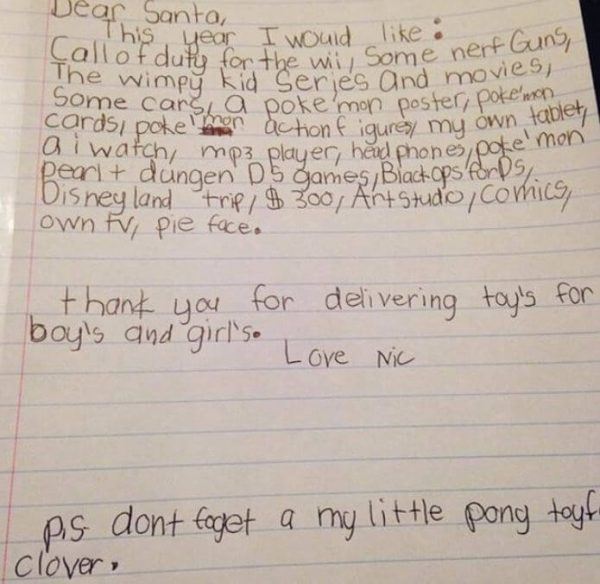 Dear Santa,
This year I would like:
Call of duty for the wii, Some nerf Guns,
The wimpy kid Series and movies,
Some cars, a poke'mon poster, poke'mon
cards, poke'mon action figures, my own tablet,
a i watch, mp3 player, head phones, poke'mon
pearl + dungen DS games, Black ops for Ds,
Disneyland trip, $300, Art Studio, comics,
own tv, pie face.
thank you for delivering toy's for
boy's and girl's.
Love Nic
p.s dont foget a my little pony toy f
clover.